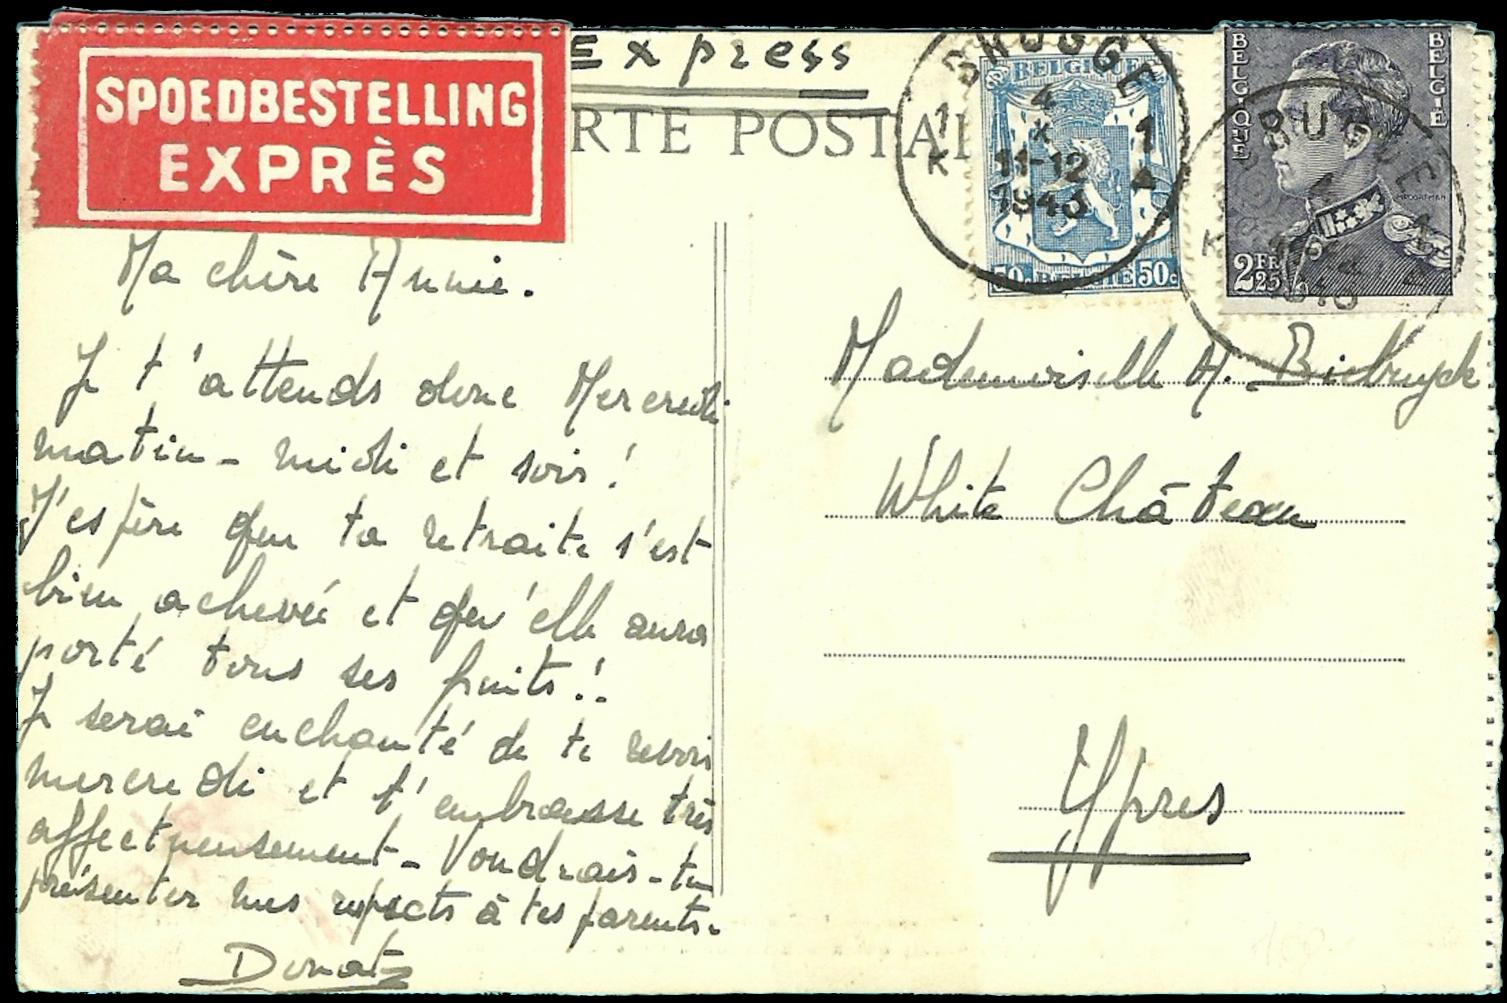 SPOEDBESTELLING
EXPRÈS
Express
RTE POSTAL
BRUGGE
1 1
K
4
*
11-12
1943
BELGIQUE
50c BELGIE 50c
BELGIQUE
BELGIË
2 FR
25
BRUGGE
K
Ma chère Annie.
Je t'attends donc Mercredi
matin - midi et soir !
J'espère que ta retraite s'est
bien achevée et qu'elle aura
porté tous ses fruits !!
Je serai enchanté de te revoir
mercredi et t'embrasse très
affectueusement - Voudrais-tu
présenter mes respects à tes parents.
Donat
Mademoiselle A.
White Château
Ypres